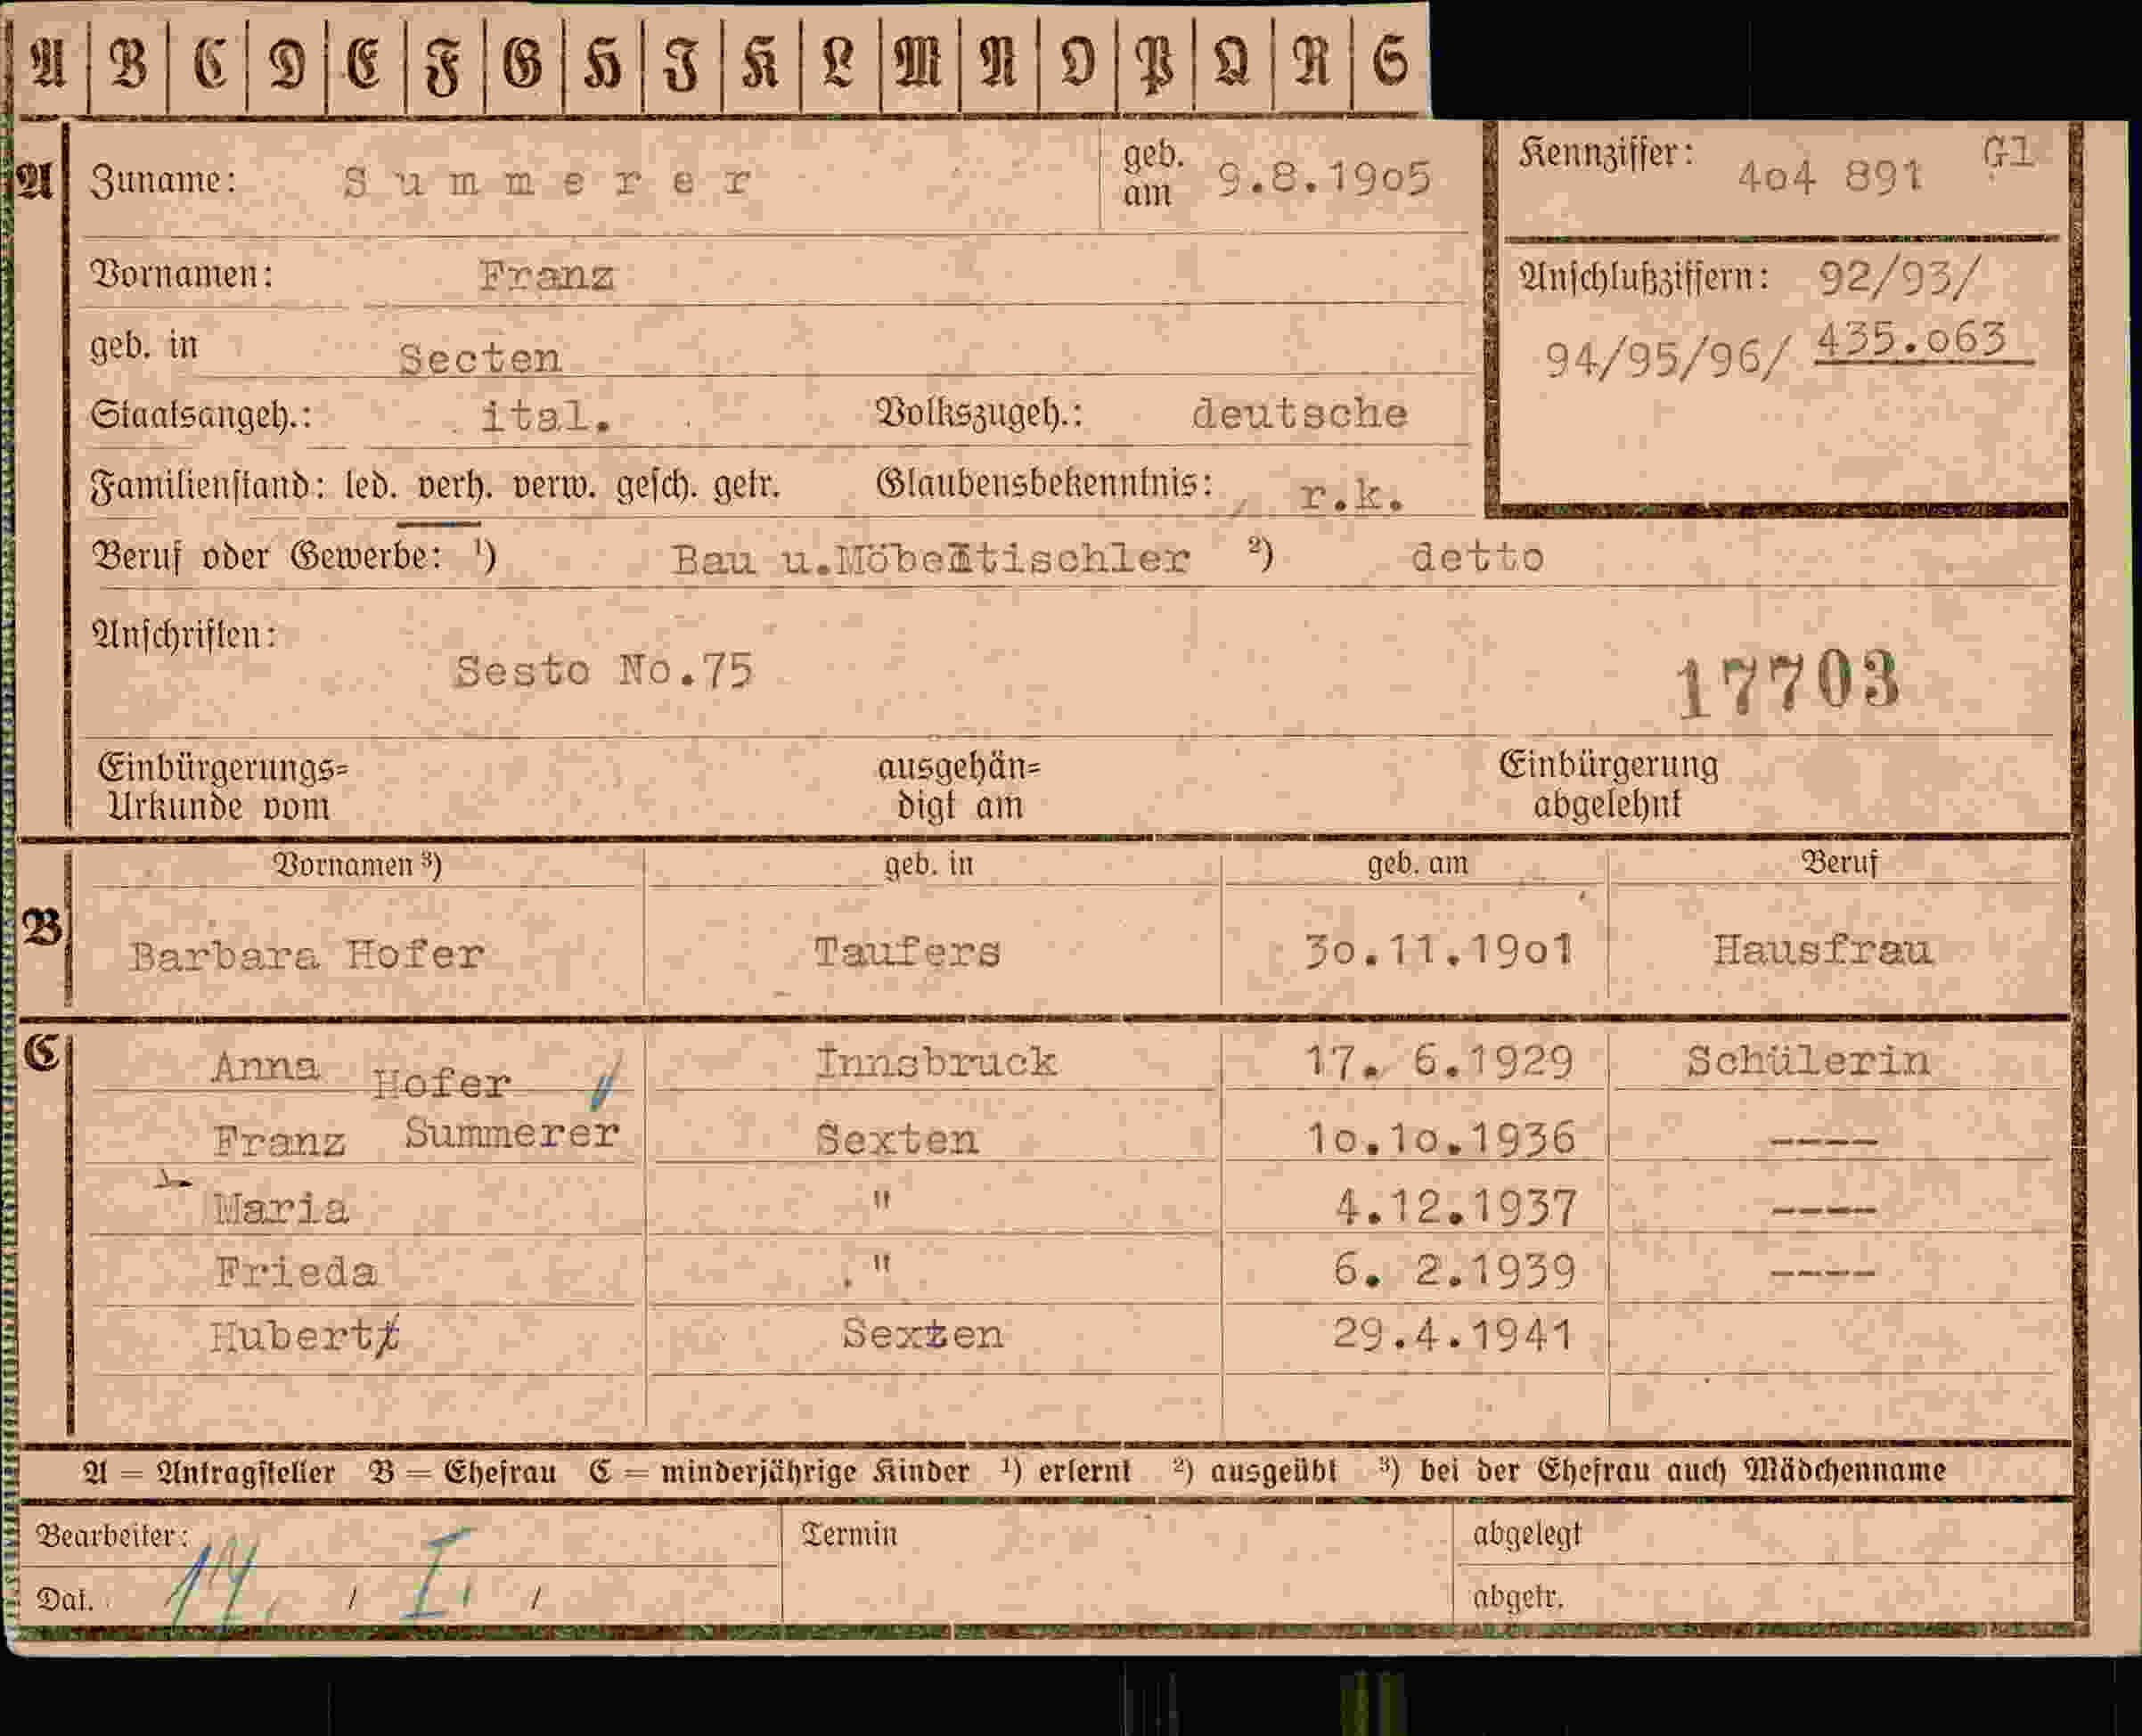 A B C D E F G H J K L M N O P Q R S
A Zuname: Summerer geb. am 9.8.1905 Kennziffer: 404 891 Gl
Vornamen: Franz Anschlußziffern: 92/93/
geb. in Secten 94/95/96/ 435.063
Staatsangeh.: ital. Volkszugeh.: deutsche
Familienstand: led. verh. verw. gesch. getr. Glaubensbekenntnis: r.k.
Beruf oder Gewerbe: ¹) Bau u.Möbeltischler ²) detto
Anschriften:
Sesto No.75 17703
Einbürgerungs= ausgehän= Einbürgerung
Urkunde vom digt am abgelehnt
Vornamen ³) geb. in geb. am Beruf
B Barbara Hofer Taufers 30.11.1901 Hausfrau
C Anna Hofer Innsbruck 17. 6.1929 Schülerin
Franz Summerer Sexten 10.10.1936 ----
Maria " 4.12.1937 ----
Frieda " 6. 2.1939 ----
Hubert Sexten 29.4.1941
A = Antragsteller B = Ehefrau C = minderjährige Kinder ¹) erlernt ²) ausgeübt ³) bei der Ehefrau auch Mädchenname
Bearbeiter: Termin abgelegt
Dat. 14. / I. / abgetr.